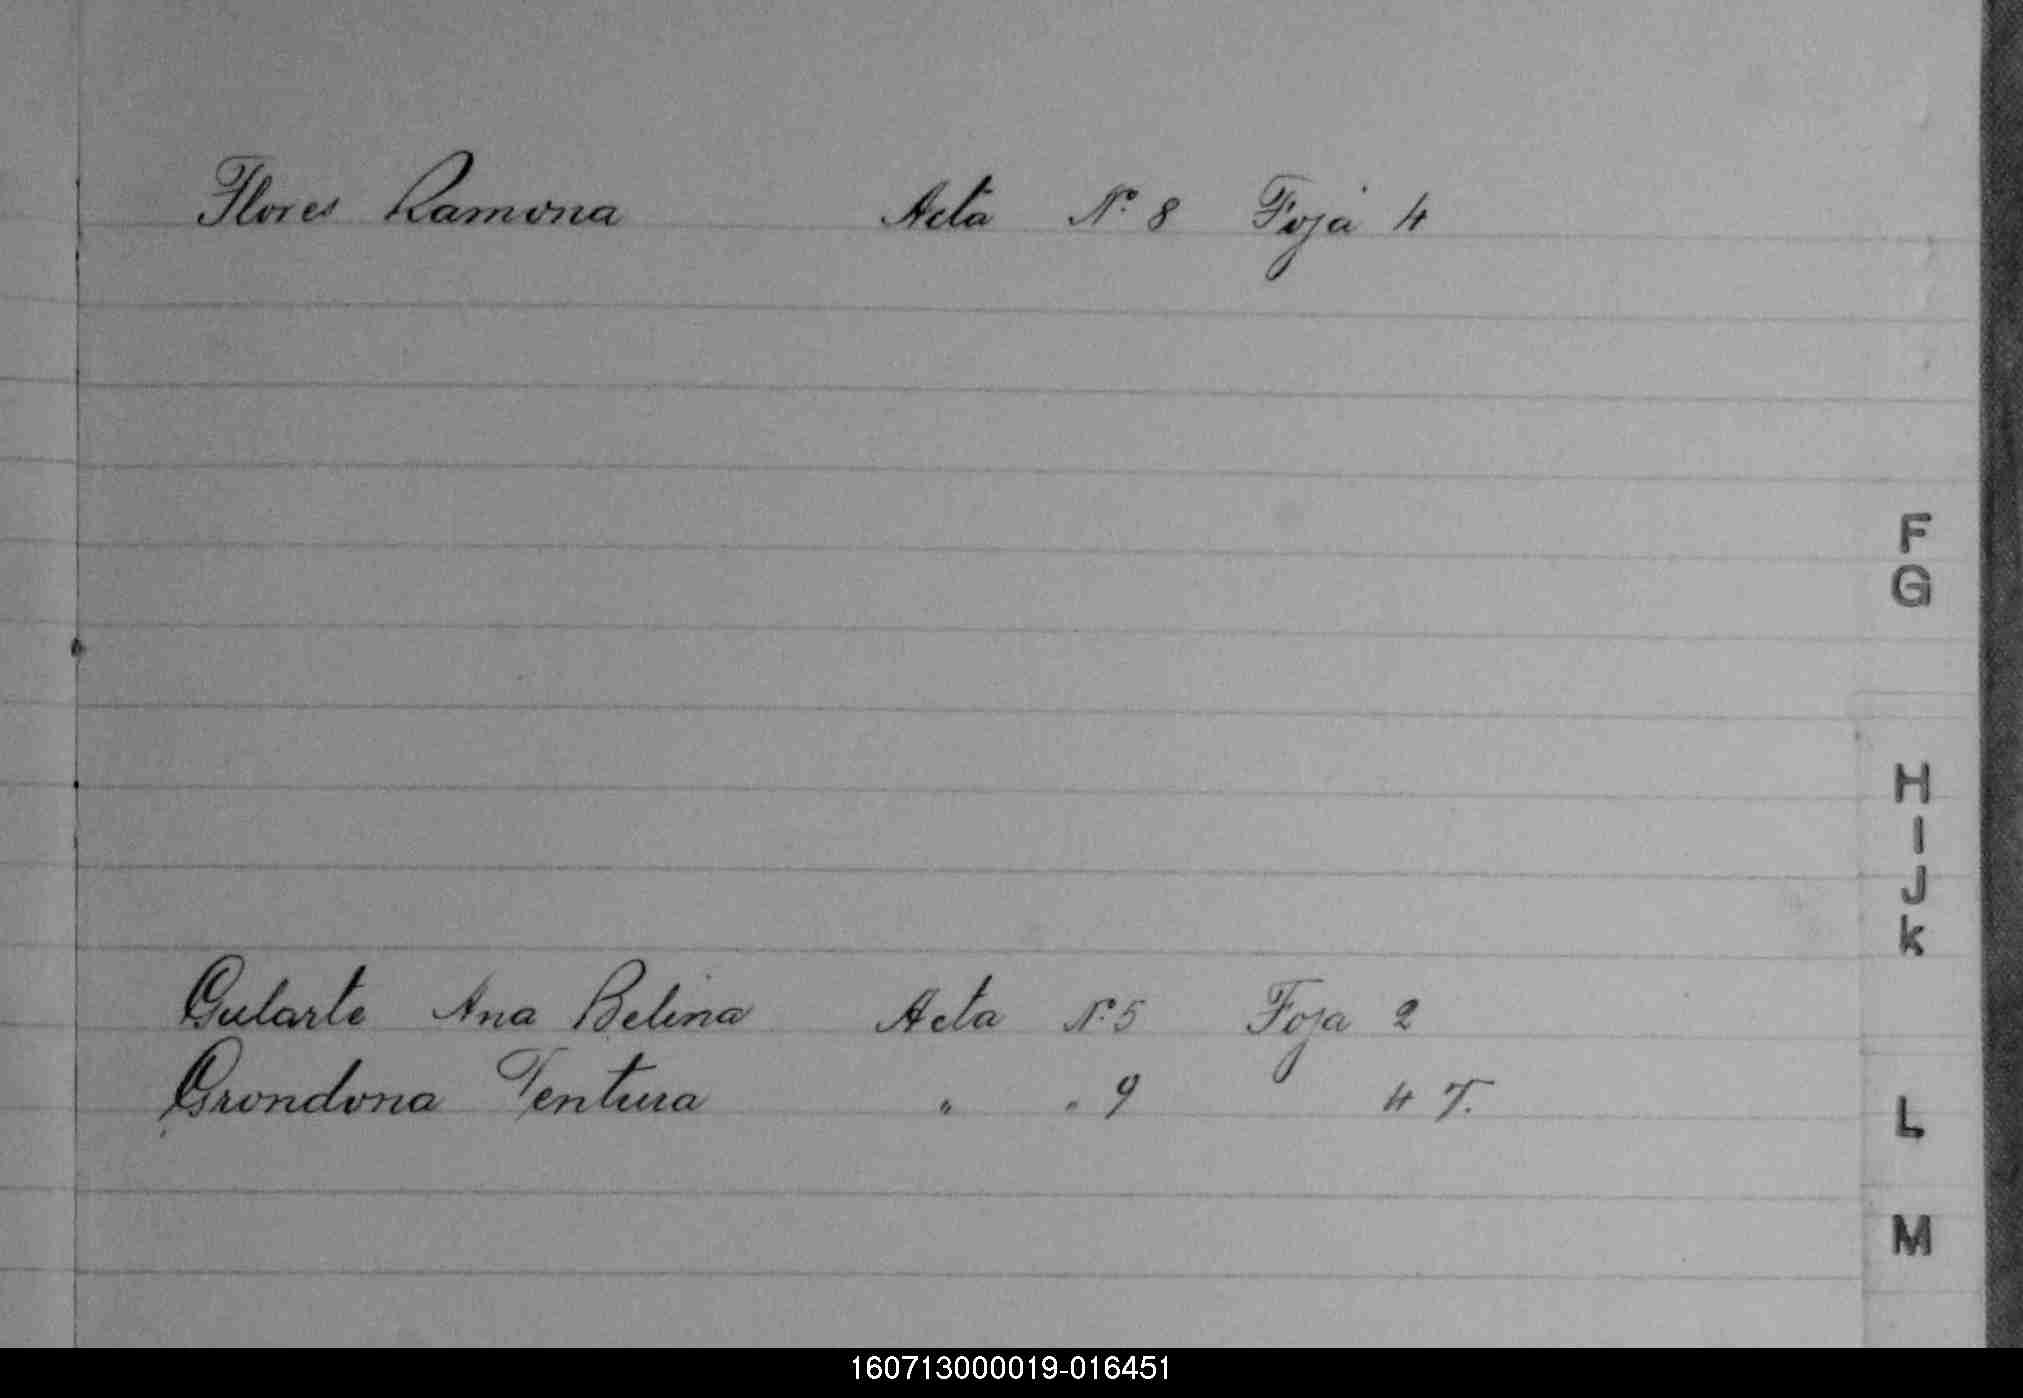 Flores Ramona Acta Nº 8 Foja 4
F
G
H
I
J
K
Gularte Ana Belina Acta Nº 5 Foja 2
Grondona Ventura " " 9 4 V.
L
M
160713000019-016451